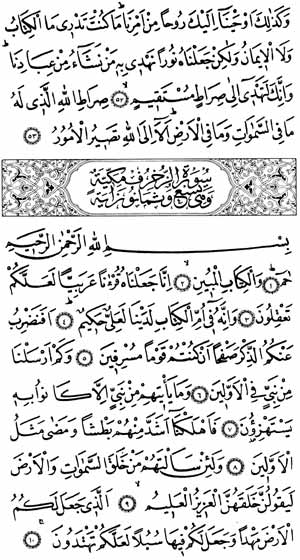 وَكَذٰلِكَ اَوْحَيْنَٓا اِلَيْكَ رُوحاً مِنْ اَمْرِنَاۜ مَا كُنْتَ تَدْر۪ي مَا الْكِتَابُ
وَلَا الْا۪يمَانُ وَلٰكِنْ جَعَلْنَاهُ نُوراً نَهْد۪ي بِه۪ مَنْ نَشَٓاءُ مِنْ عِبَادِنَاۜ
وَاِنَّكَ لَتَهْد۪ٓي اِلٰى صِرَاطٍ مُسْتَق۪يمٍۙ ﴿٥٢﴾ صِرَاطِ اللّٰهِ الَّذ۪ي لَهُ
مَا فِي السَّمٰوَاتِ وَمَا فِي الْاَرْضِۜ اَلَٓا اِلَى اللّٰهِ تَص۪يرُ الْاُمُورُ
﴿٥٣﴾
سورة الزخرف مكية
وهي تسع وثمانون اية
بِسْمِ اللّٰهِ الرَّحْمٰنِ الرَّح۪يمِ
حٰمٓۜ ﴿١﴾ وَالْكِتَابِ الْمُب۪ينِۙ ﴿٢﴾ اِنَّا جَعَلْنَاهُ قُرْءٰناً عَرَبِياًّ لَعَلَّكُمْ
تَعْقِلُونَۚ ﴿٣﴾ وَاِنَّهُ ف۪ٓي اُمِّ الْكِتَابِ لَدَيْنَا لَعَلِيٌّ حَك۪يمٌۜ ﴿٤﴾ اَفَنَضْرِبُ
عَنْكُمُ الذِّكْرَ صَفْحاً اَنْ كُنْتُمْ قَوْماً مُسْرِف۪ينَ ﴿٥﴾ وَكَمْ اَرْسَلْنَا
مِنْ نَبِيٍّ فِي الْاَوَّل۪ينَ ﴿٦﴾ وَمَا يَأْت۪يهِمْ مِنْ نَبِيٍّ اِلَّا كَانُوا بِه۪
يَسْتَهْزِؤُ۫نَ ﴿٧﴾ فَاَهْلَكْنَٓا اَشَدَّ مِنْهُمْ بَطْشاً وَمَضٰى مَثَلُ
الْاَوَّل۪ينَ ﴿٨﴾ وَلَئِنْ سَاَلْتَهُمْ مَنْ خَلَقَ السَّمٰوَاتِ وَالْاَرْضَ
لَيَقُولُنَّ خَلَقَهُنَّ الْعَز۪يزُ الْعَل۪يمُۙ ﴿٩﴾ اَلَّذ۪ي جَعَلَ لَكُمُ
الْاَرْضَ مَهْداً وَجَعَلَ لَكُمْ ف۪يهَا سُبُلاً لَعَلَّكُمْ تَهْتَدُونَۚ ﴿١٠﴾